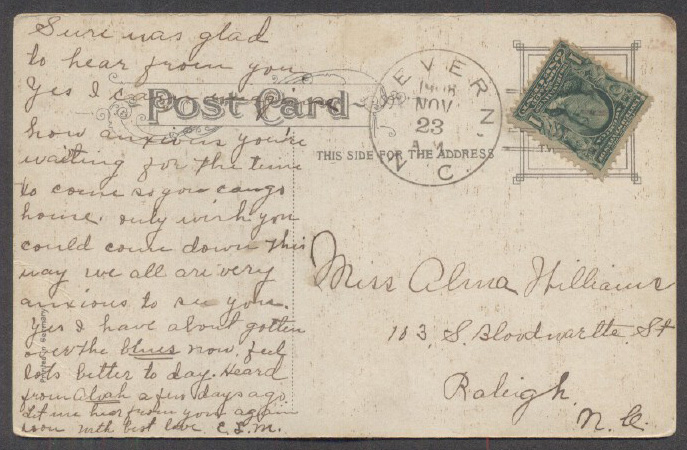 Sure was glad
to hear from you
Yes I can
how anxious you're
waiting for the time
to come so you can go
home. only wish you
could come down this
way we all are very
anxious to see you.
Yes I have about gotten
over the blues now, feel
lots better to day. Heard
from Alvah a few days ago.
Let me hear from you again
soon with best love. C.L.M.
Post Card
THIS SIDE FOR THE ADDRESS
SEVERN
1908
NOV
23
A.M.
N. C.
Miss Alma Williams
103, S. Bloodwortte St
Raleigh,
N. C.